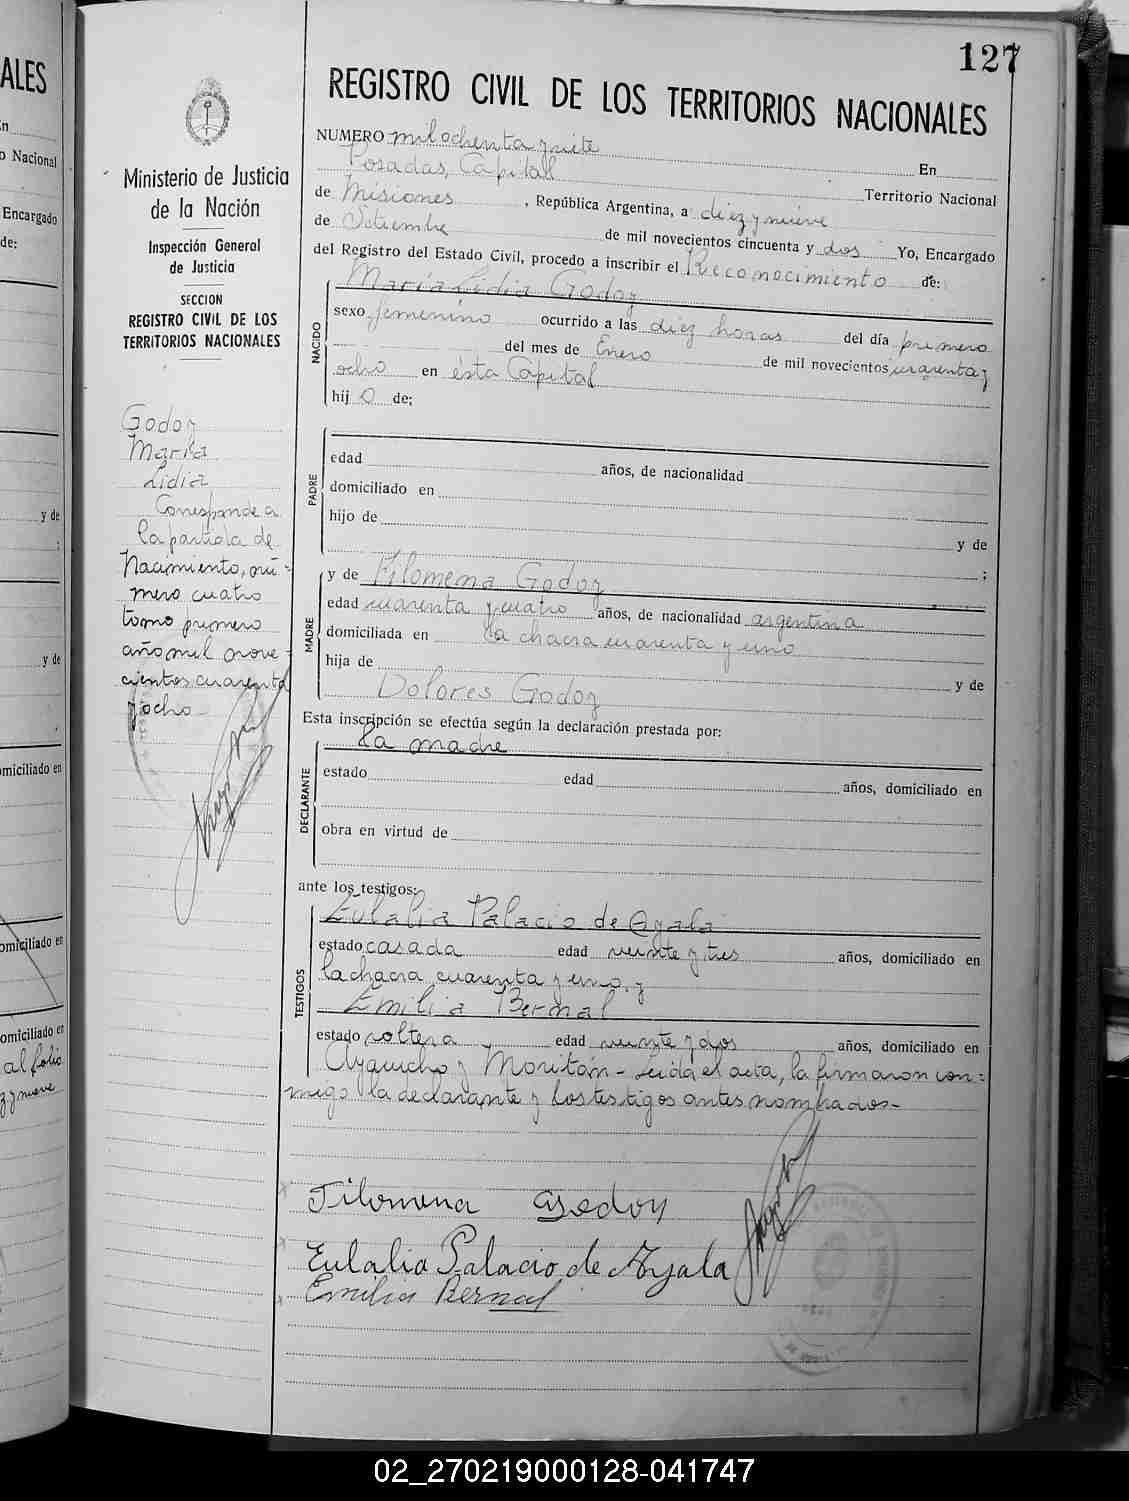 127
REGISTRO CIVIL DE LOS TERRITORIOS NACIONALES
NUMERO mil ochenta y siete
En
Posadas, Capital
Territorio Nacional
de Misiones, República Argentina, a diez y nueve
de Setiembre de mil novecientos cincuenta y dos Yo, Encargado
del Registro del Estado Civil, procedo a inscribir el Reconocimiento de:
María Lidia Godoy
NACIDO
sexo femenino ocurrido a las diez horas del día primero
del mes de Enero de mil novecientos cuarenta y
ocho en ésta Capital
hij o de:
PADRE
edad años, de nacionalidad
domiciliado en
hijo de
y de
;
MADRE
y de Filomena Godoy
edad cuarenta y cuatro años, de nacionalidad argentina
domiciliada en la chacra cuarenta y uno
hija de
y de
Dolores Godoy
Esta inscripción se efectúa según la declaración prestada por:
la madre
DECLARANTE
estado edad años, domiciliado en
obra en virtud de
ante los testigos:
Eulalia Palacio de Ayala
TESTIGOS
estado casada edad veinte y tres años, domiciliado en
la chacra cuarenta y uno, y
Emilia Bernal
estado soltera edad veinte y dos años, domiciliado en
Ayacucho y Moritán - Leída el acta, la firmaron con=
migo la declarante y los testigos antes nombrados.-
Filomena Godoy
Eulalia Palacio de Ayala
Emilia Bernal
Ministerio de Justicia
de la Nación
Inspección General
de Justicia
SECCION
REGISTRO CIVIL DE LOS
TERRITORIOS NACIONALES
Godoy
María
Lidia
Corresponde a
la partida de
Nacimiento, nú=
mero cuatro
tomo primero
año mil nove=
cientos cuarenta
y ocho
ALES
o Nacional
Encargado
de:
y de
;
y de
omiciliado en
omiciliado en
omiciliado en
al folio
y nueve
02_270219000128-041747